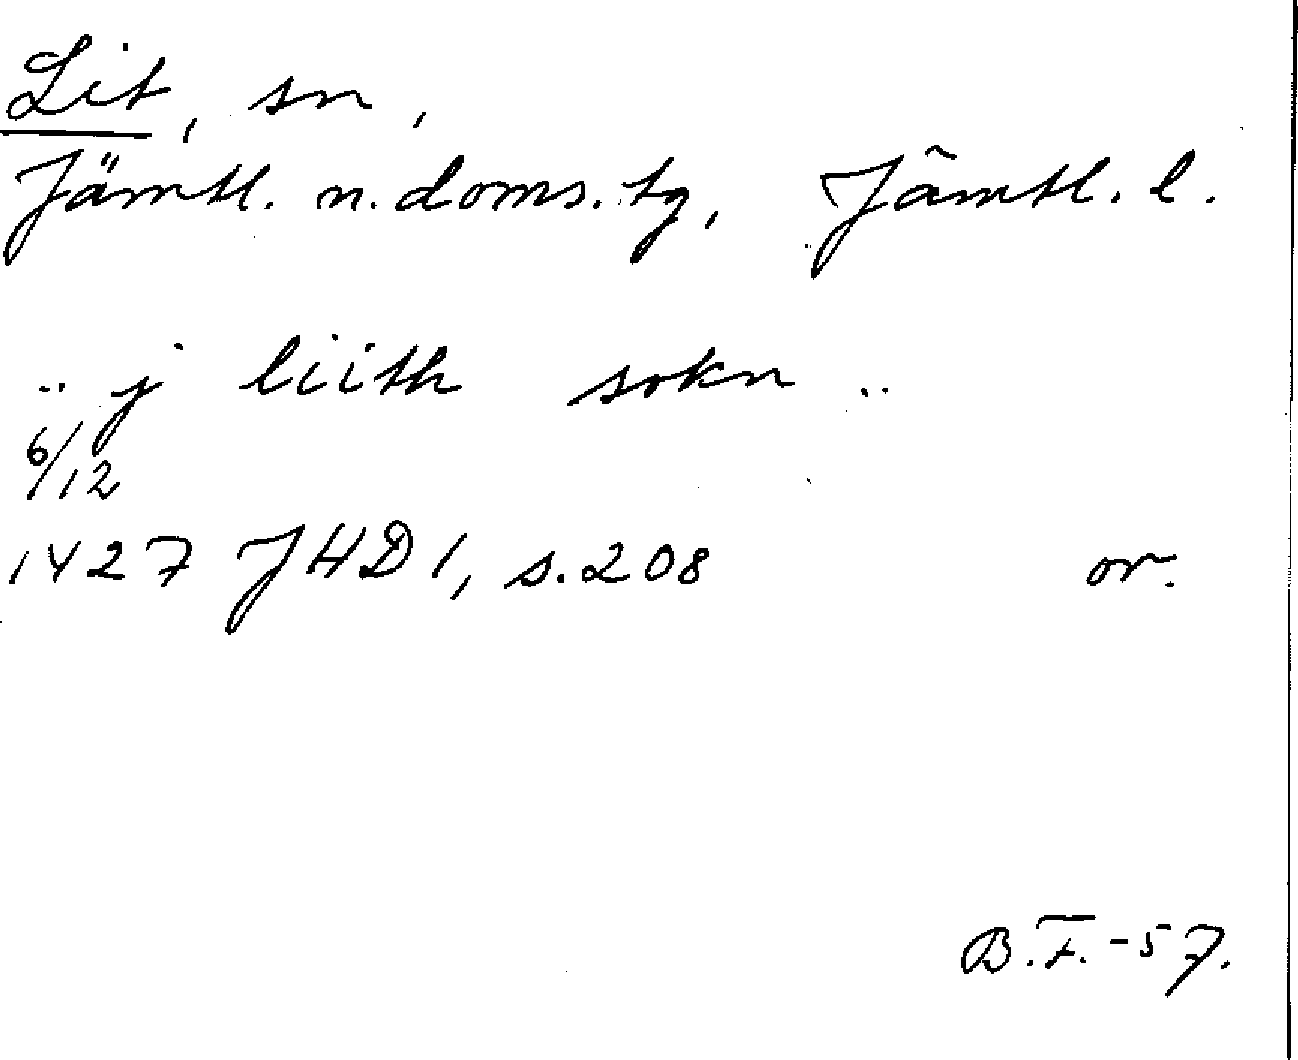 Lit, sn,
Jämtl. n. doms. tg, Jämtl. l.
.. j liith sokn ..
6/12
1427 JHD 1, s. 208 or.
B.F. -57.